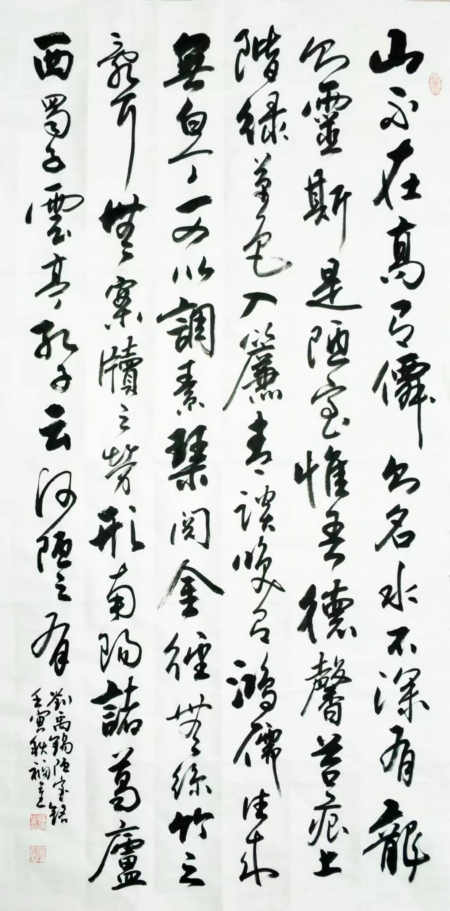 山不在高有僊則名水不深有龍
則靈斯是陋室惟吾德馨苔痕上
階緑草色入簾青談笑有鴻儒往来
無白丁可以調素琴閲金經無絲竹之
亂耳無案牘之勞形南陽諸葛廬
西蜀子雲亭孔子云何陋之有
劉禹錫陋室銘
壬寅秋